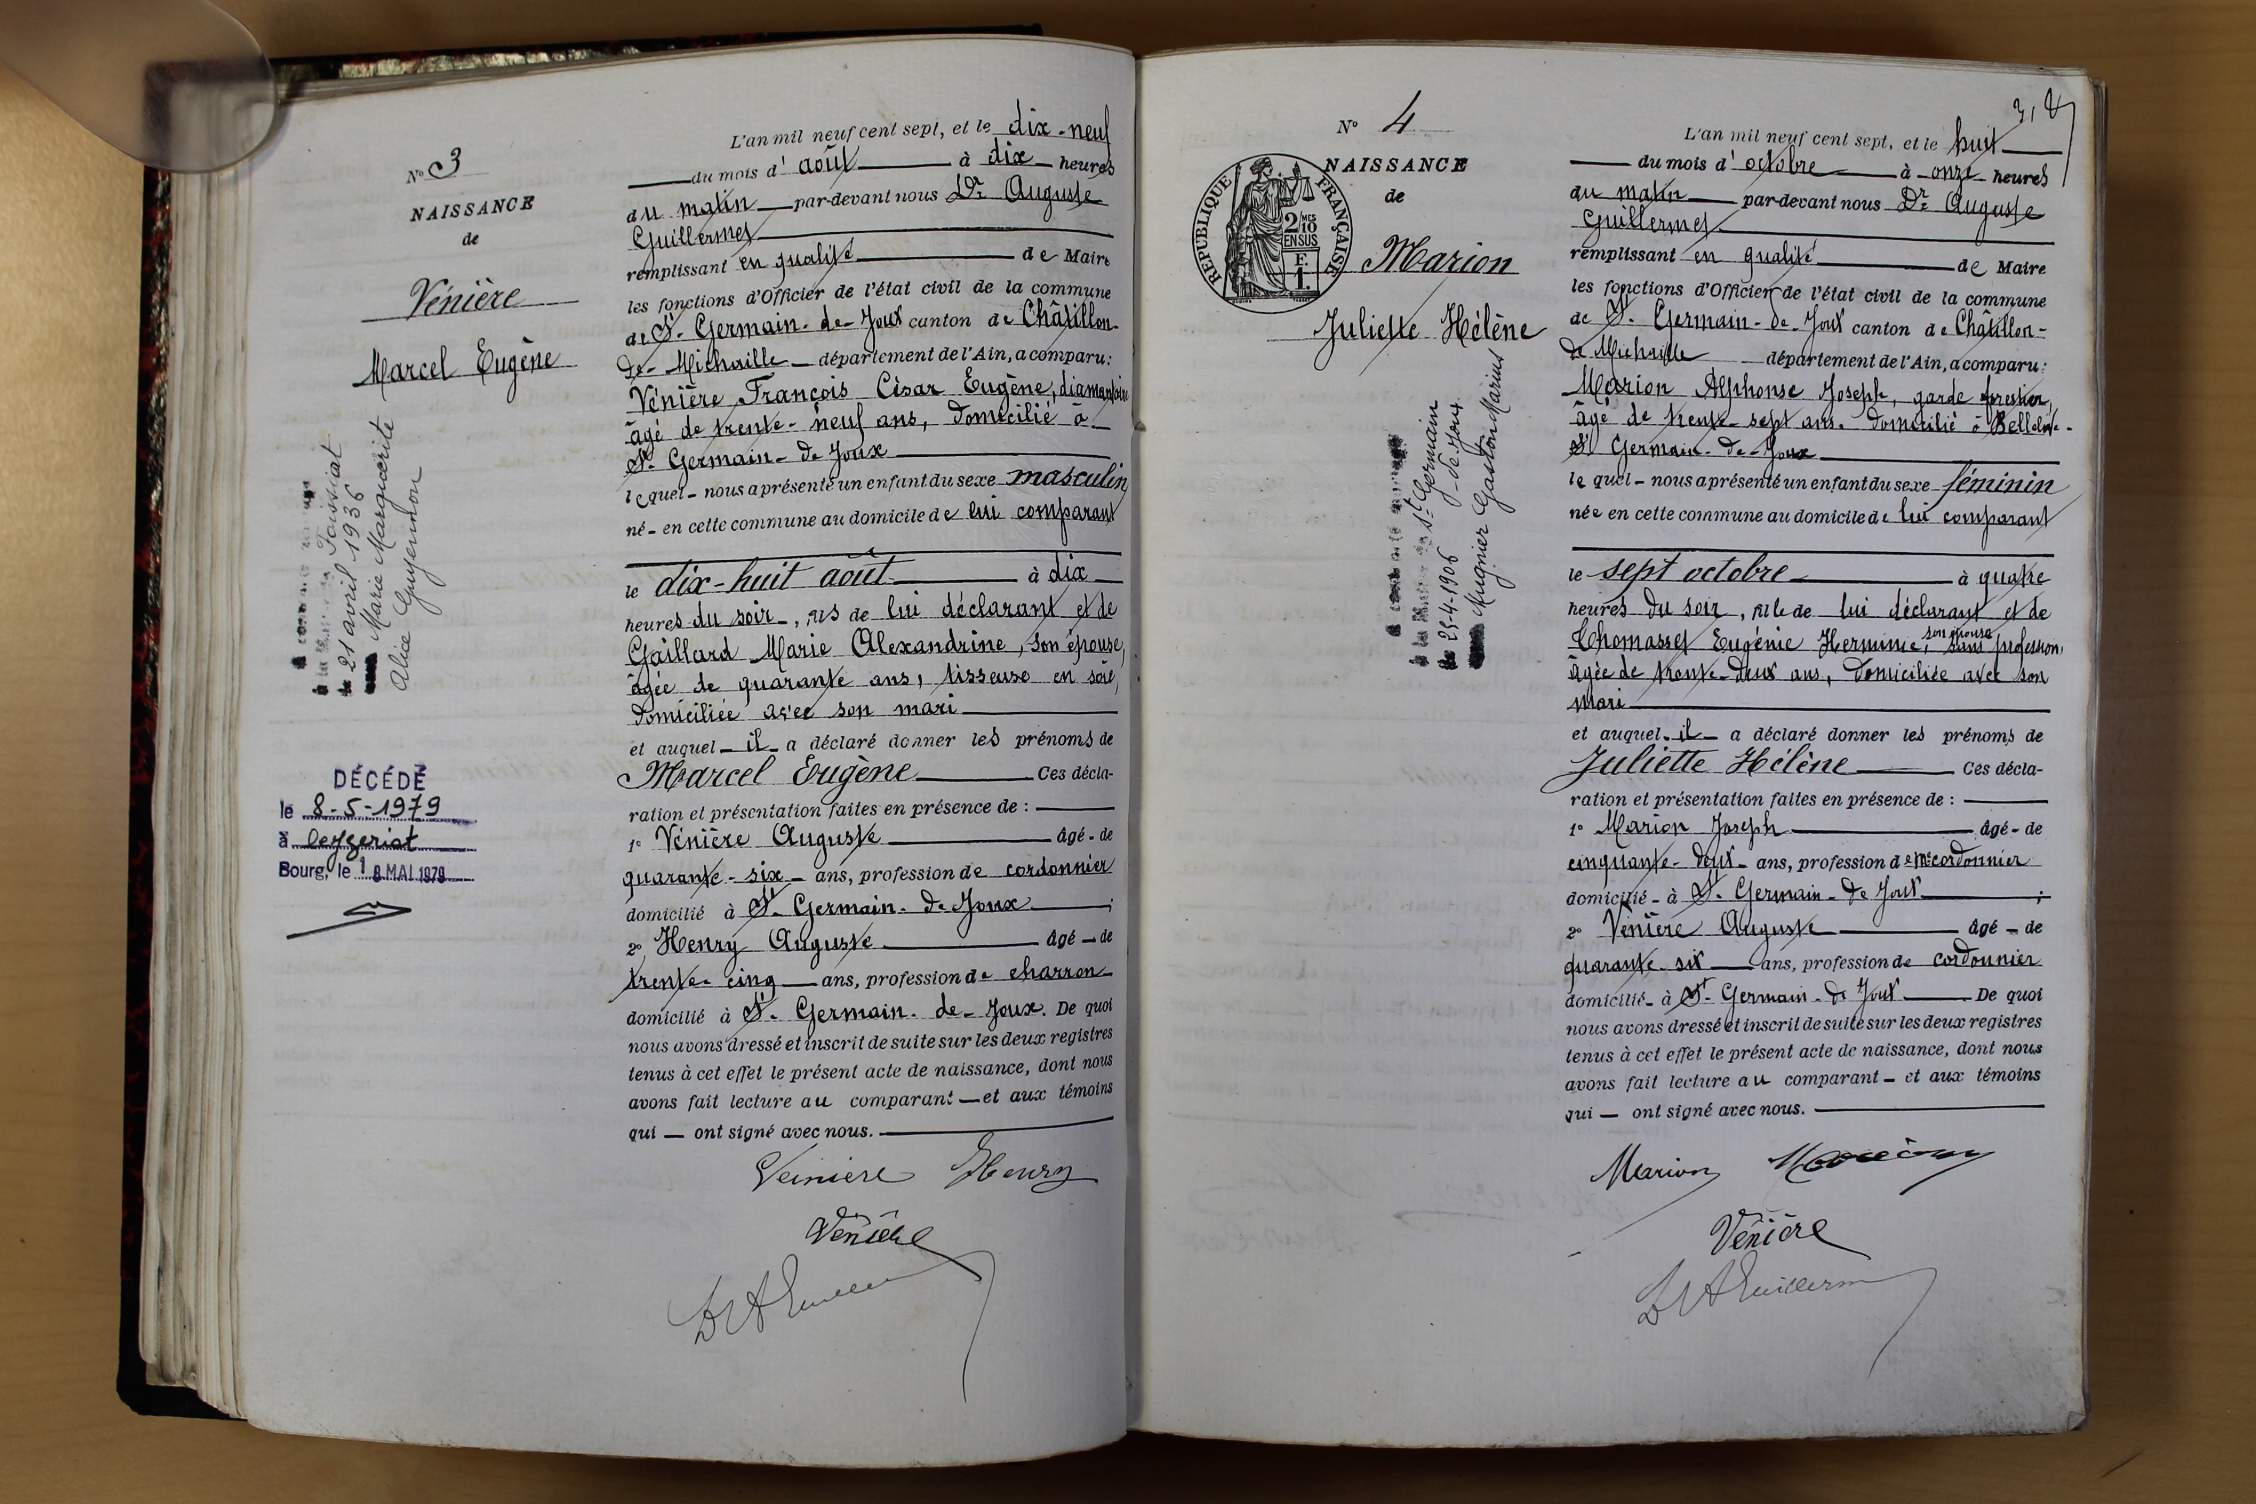 N° 3
NAISSANCE
de
Vénière
Marcel Eugène
21 avril 1936
Marie Marguerite
Alice Guyennon
DÉCÉDÉ
le 8-5-1979
à Ceyzeriat
Bourg, le 18 MAI 1979
L'an mil neuf cent sept, et le dix-neuf
du mois d'août à dix heures
du matin par-devant nous Dr Auguste
Guillermet
remplissant en qualité de Maire
les fonctions d'Officier de l'état civil de la commune
de St-Germain-de-Joux canton de Châtillon-
de-Michaille département de l'Ain, a comparu:
Vénière François César Eugène, diamantaire
âgé de trente-neuf ans, domicilié à
St-Germain-de-Joux
lequel nous a présenté un enfant du sexe masculin
né en cette commune au domicile de lui comparant
le dix-huit août à dix
heures du soir, fils de lui déclarant et de
Gaillard Marie Alexandrine, son épouse,
âgée de quarante ans, tisseuse en soie,
domiciliée avec son mari
et auquel il a déclaré donner les prénoms de
Marcel Eugène Ces décla-
ration et présentation faites en présence de :
1° Vénière Auguste âgé de
quarante-six ans, profession de cordonnier
domicilié à St-Germain-de-Joux ;
2° Henry Auguste âgé de
trente-cinq ans, profession de charron
domicilié à St-Germain-de-Joux. De quoi
nous avons dressé et inscrit de suite sur les deux registres
tenus à cet effet le présent acte de naissance, dont nous
avons fait lecture au comparant et aux témoins
qui ont signé avec nous.
Veiniere Henry
Vénière
N° 4
NAISSANCE
de
RÉPUBLIQUE FRANÇAISE
2/10 MES
EN SUS
F.
1.
Marion
Juliette Hélène
St-Germain
-de-Joux
Mugnier Gaston Marius
L'an mil neuf cent sept, et le huit
du mois d'octobre à onze heures
du matin par-devant nous Dr Auguste
Guillermet
remplissant en qualité de Maire
les fonctions d'Officier de l'état civil de la commune
de St-Germain-de-Joux canton de Châtillon-
de Michaille département de l'Ain, a comparu:
Marion Alphonse Joseph, garde forestier,
âgé de trente-sept ans, domicilié à
St Germain-de-Joux
lequel nous a présenté un enfant du sexe féminin
née en cette commune au domicile de lui comparant
le sept octobre à quatre
heures du soir, fille de lui déclarant et de
Thomasset Eugénie Herminie, son épouse sans profession,
âgée de trente-deux ans, domiciliée avec son
mari
et auquel il a déclaré donner les prénoms de
Juliette Hélène Ces décla-
ration et présentation faites en présence de :
1° Marion Joseph âgé de
cinquante-deux ans, profession de md cordonnier
domicilié à St-Germain-de Joux ;
2° Vénière Auguste âgé de
quarante-six ans, profession de cordonnier
domicilié à St-Germain-de Joux De quoi
nous avons dressé et inscrit de suite sur les deux registres
tenus à cet effet le présent acte de naissance, dont nous
avons fait lecture au comparant et aux témoins
qui ont signé avec nous.
Marion Marion
Vénière
Dr A Guillermet